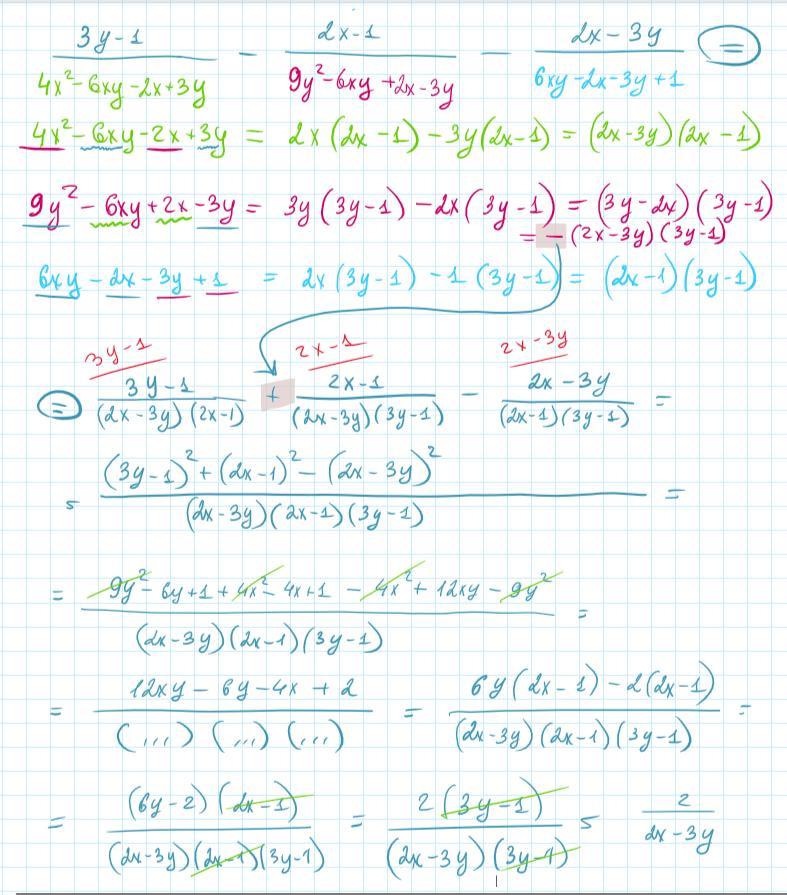 (3y-1)/(4x²-6xy-2x+3y) - (2x-1)/(9y²-6xy+2x-3y) - (2x-3y)/(6xy-2x-3y+1) =
4x²-6xy-2x+3y = 2x(2x-1)-3y(2x-1) = (2x-3y)(2x-1)
9y²-6xy+2x-3y = 3y(3y-1)-2x(3y-1) = (3y-2x)(3y-1)
= -(2x-3y)(3y-1)
6xy-2x-3y+1 = 2x(3y-1)-1(3y-1) = (2x-1)(3y-1)
3y-1 2x-1 2x-3y
= (3y-1)/((2x-3y)(2x-1)) + (2x-1)/((2x-3y)(3y-1)) - (2x-3y)/((2x-1)(3y-1)) =
= ((3y-1)²+(2x-1)²-(2x-3y)²)/((2x-3y)(2x-1)(3y-1)) =
= (9y²-6y+1+4x²-4x+1-4x²+12xy-9y²)/((2x-3y)(2x-1)(3y-1)) =
= (12xy-6y-4x+2)/((...)(...)(...)) = (6y(2x-1)-2(2x-1))/((2x-3y)(2x-1)(3y-1)) =
= ((6y-2)(2x-1))/((2x-3y)(2x-1)(3y-1)) = (2(3y-1))/((2x-3y)(3y-1)) = 2/(2x-3y)